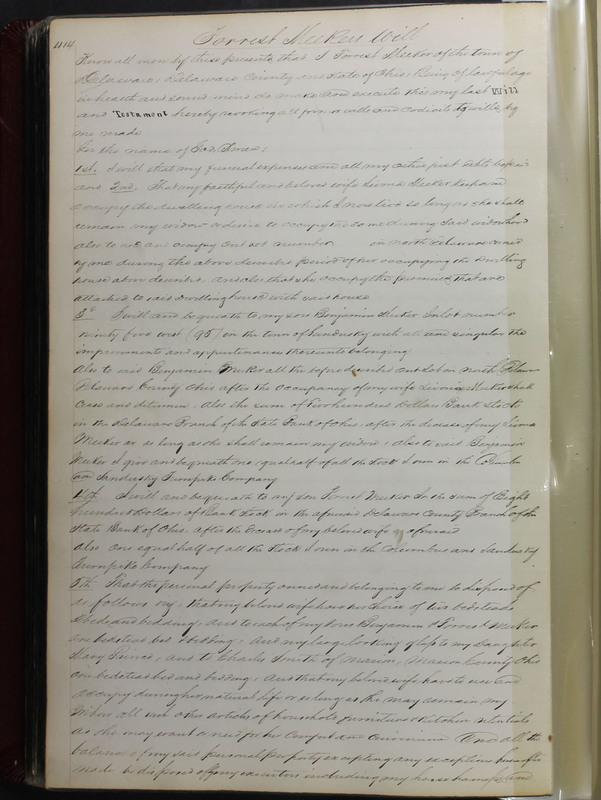 404
Forrest Meeker Will
Know all men by these presents that I Forrest Meeker of the town of
Delaware, Delaware County and State of Ohio, Being of lawful age
in health and sound mind do make and execute this my last Will
and Testament hereby revoking all former wills and codicils to wills by
me made
In the name of God Amen:
1st. I will that my funeral expenses and all my other just debts be paid
and 2nd. That my faithful and beloved wife Livonia Meeker keep and
occupy the dwelling house in which I now live so long as she shall
remain my widow or desire to occupy the same during said widowhood
also to use and occupy Out lot number in North Delaware owned
by me during the above described period of her occupying the dwelling
house above described. and also that she occupy the premises that are
attached to said dwelling house with said house
3d I will and bequeath to my son Benjamin Meeker Inlot number
ninety five west (95) in the town of Sandusky with all and singular the
improvements and appurtenances thereunto belonging
Also to said Benjamin Meeker all the before described Out Lot on North
Delaware County Ohio after the occupancy of my wife Livonia Meeker shall
cease and determine. Also the sum of Five hundred Dollars Bank Stock
in the Delaware Branch of the State Bank of Ohio, after the decease of my Livonia
Meeker or as long as she shall remain my widow, also to said Benjamin
Meeker I give and bequeath one equal half of all the Stock I own in the Columbus
and Sandusky Turnpike Company
4th. I will and bequeath to my son Forrest Meeker Jr the sum of Eight
hundred Dollars of Bank Stock in the aforesaid Delaware County Branch of the
State Bank of Ohio. after the decease of my beloved wife aforesaid
Also one equal half of all the Stock I own in the Columbus and Sandusky
Turnpike Company
5th. That the personal property owned and belonging to me be disposed of
as follows viz: that my beloved wife have her choice of two bedsteads
& beds and bedding, And to each of my sons Benjamin & Forrest Meeker
one bedstead bed & bedding, And my large looking glass to my Daughter
Mary Peirce, and to Charles Smith of Marion, Marion County Ohio
one bedstead bed and bedding, And that my beloved wife have to use and
occupy during her natural life or as long as she may remain my
widow all such other articles of household furniture & kitchen utentials
as she may want or need for her comfort and convenience And all the
balance of my said personal property excepting any exceptions herein after
made be disposed of by my executors including my horse harness and